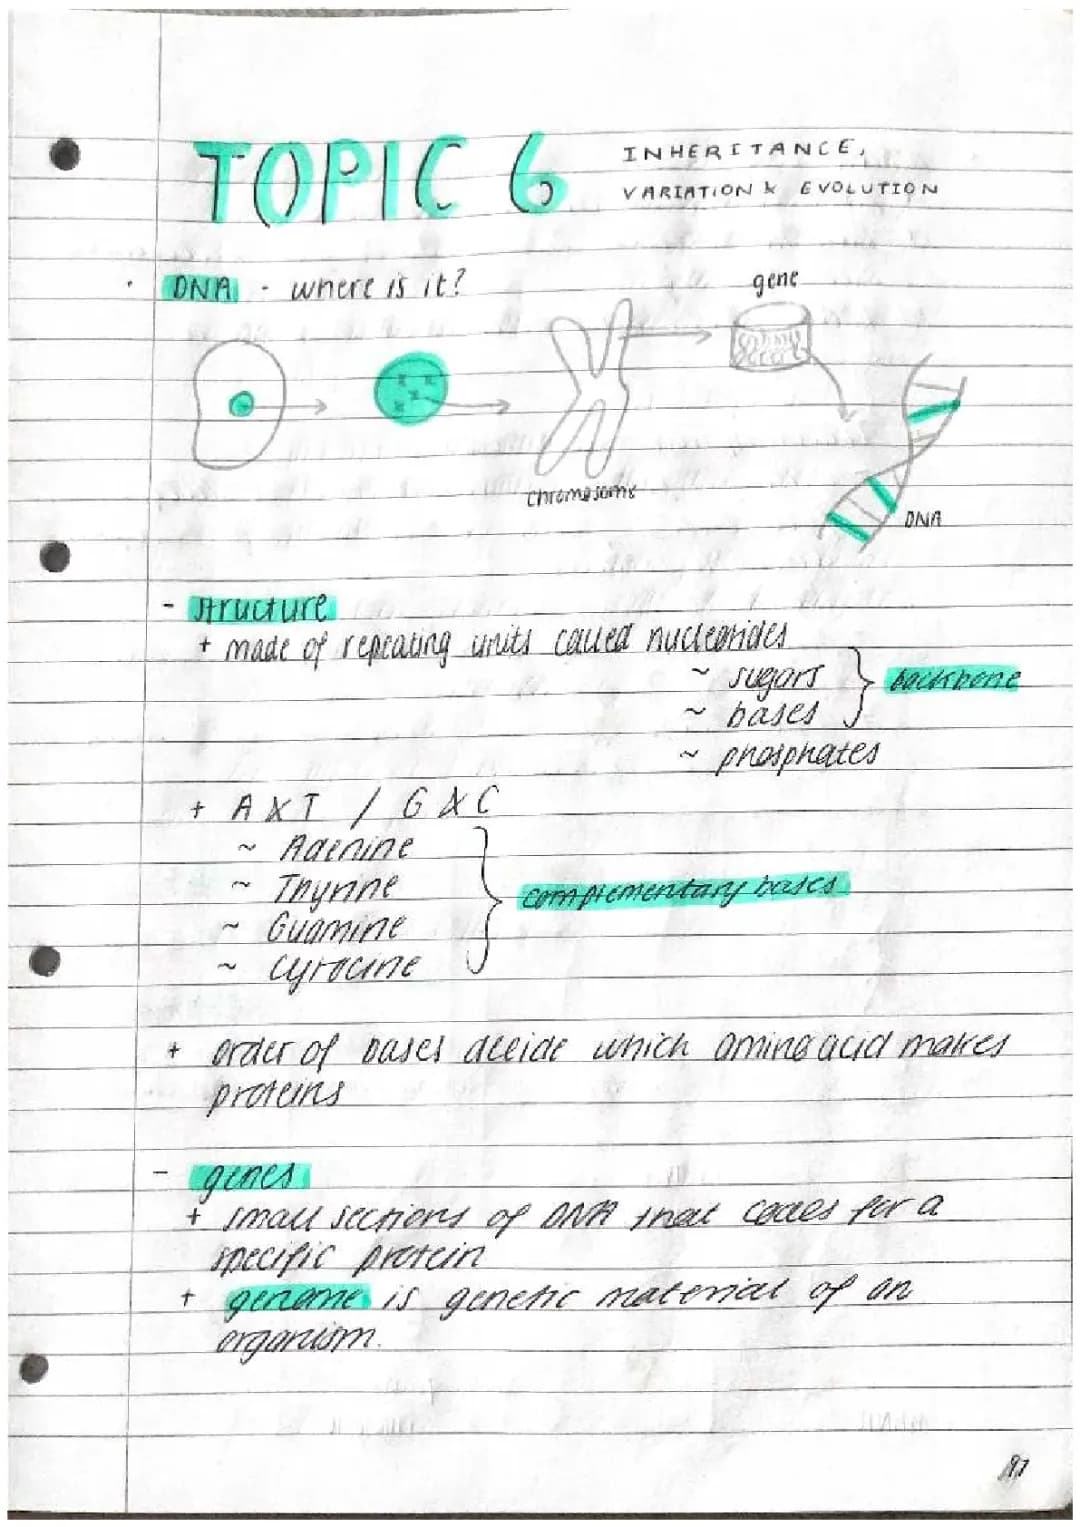 TOPIC 6
INHERITANCE,
VARIATION & EVOLUTION
DNA - where is it?
gene
chromosome
DNA
- structure
+ made of repeating units called nucleotides
~ sugars
~ bases
backbone
~ phosphates
+ A & T / G & C
~ Adenine
~ Thyrine
~ Guamine
~ Cyrocine
complementary bases
+ order of bases decide which amino acid makes
proteins
- genes
+ small sections of DNA that codes for a
specific protein
+ genome is genetic material of an
organism.